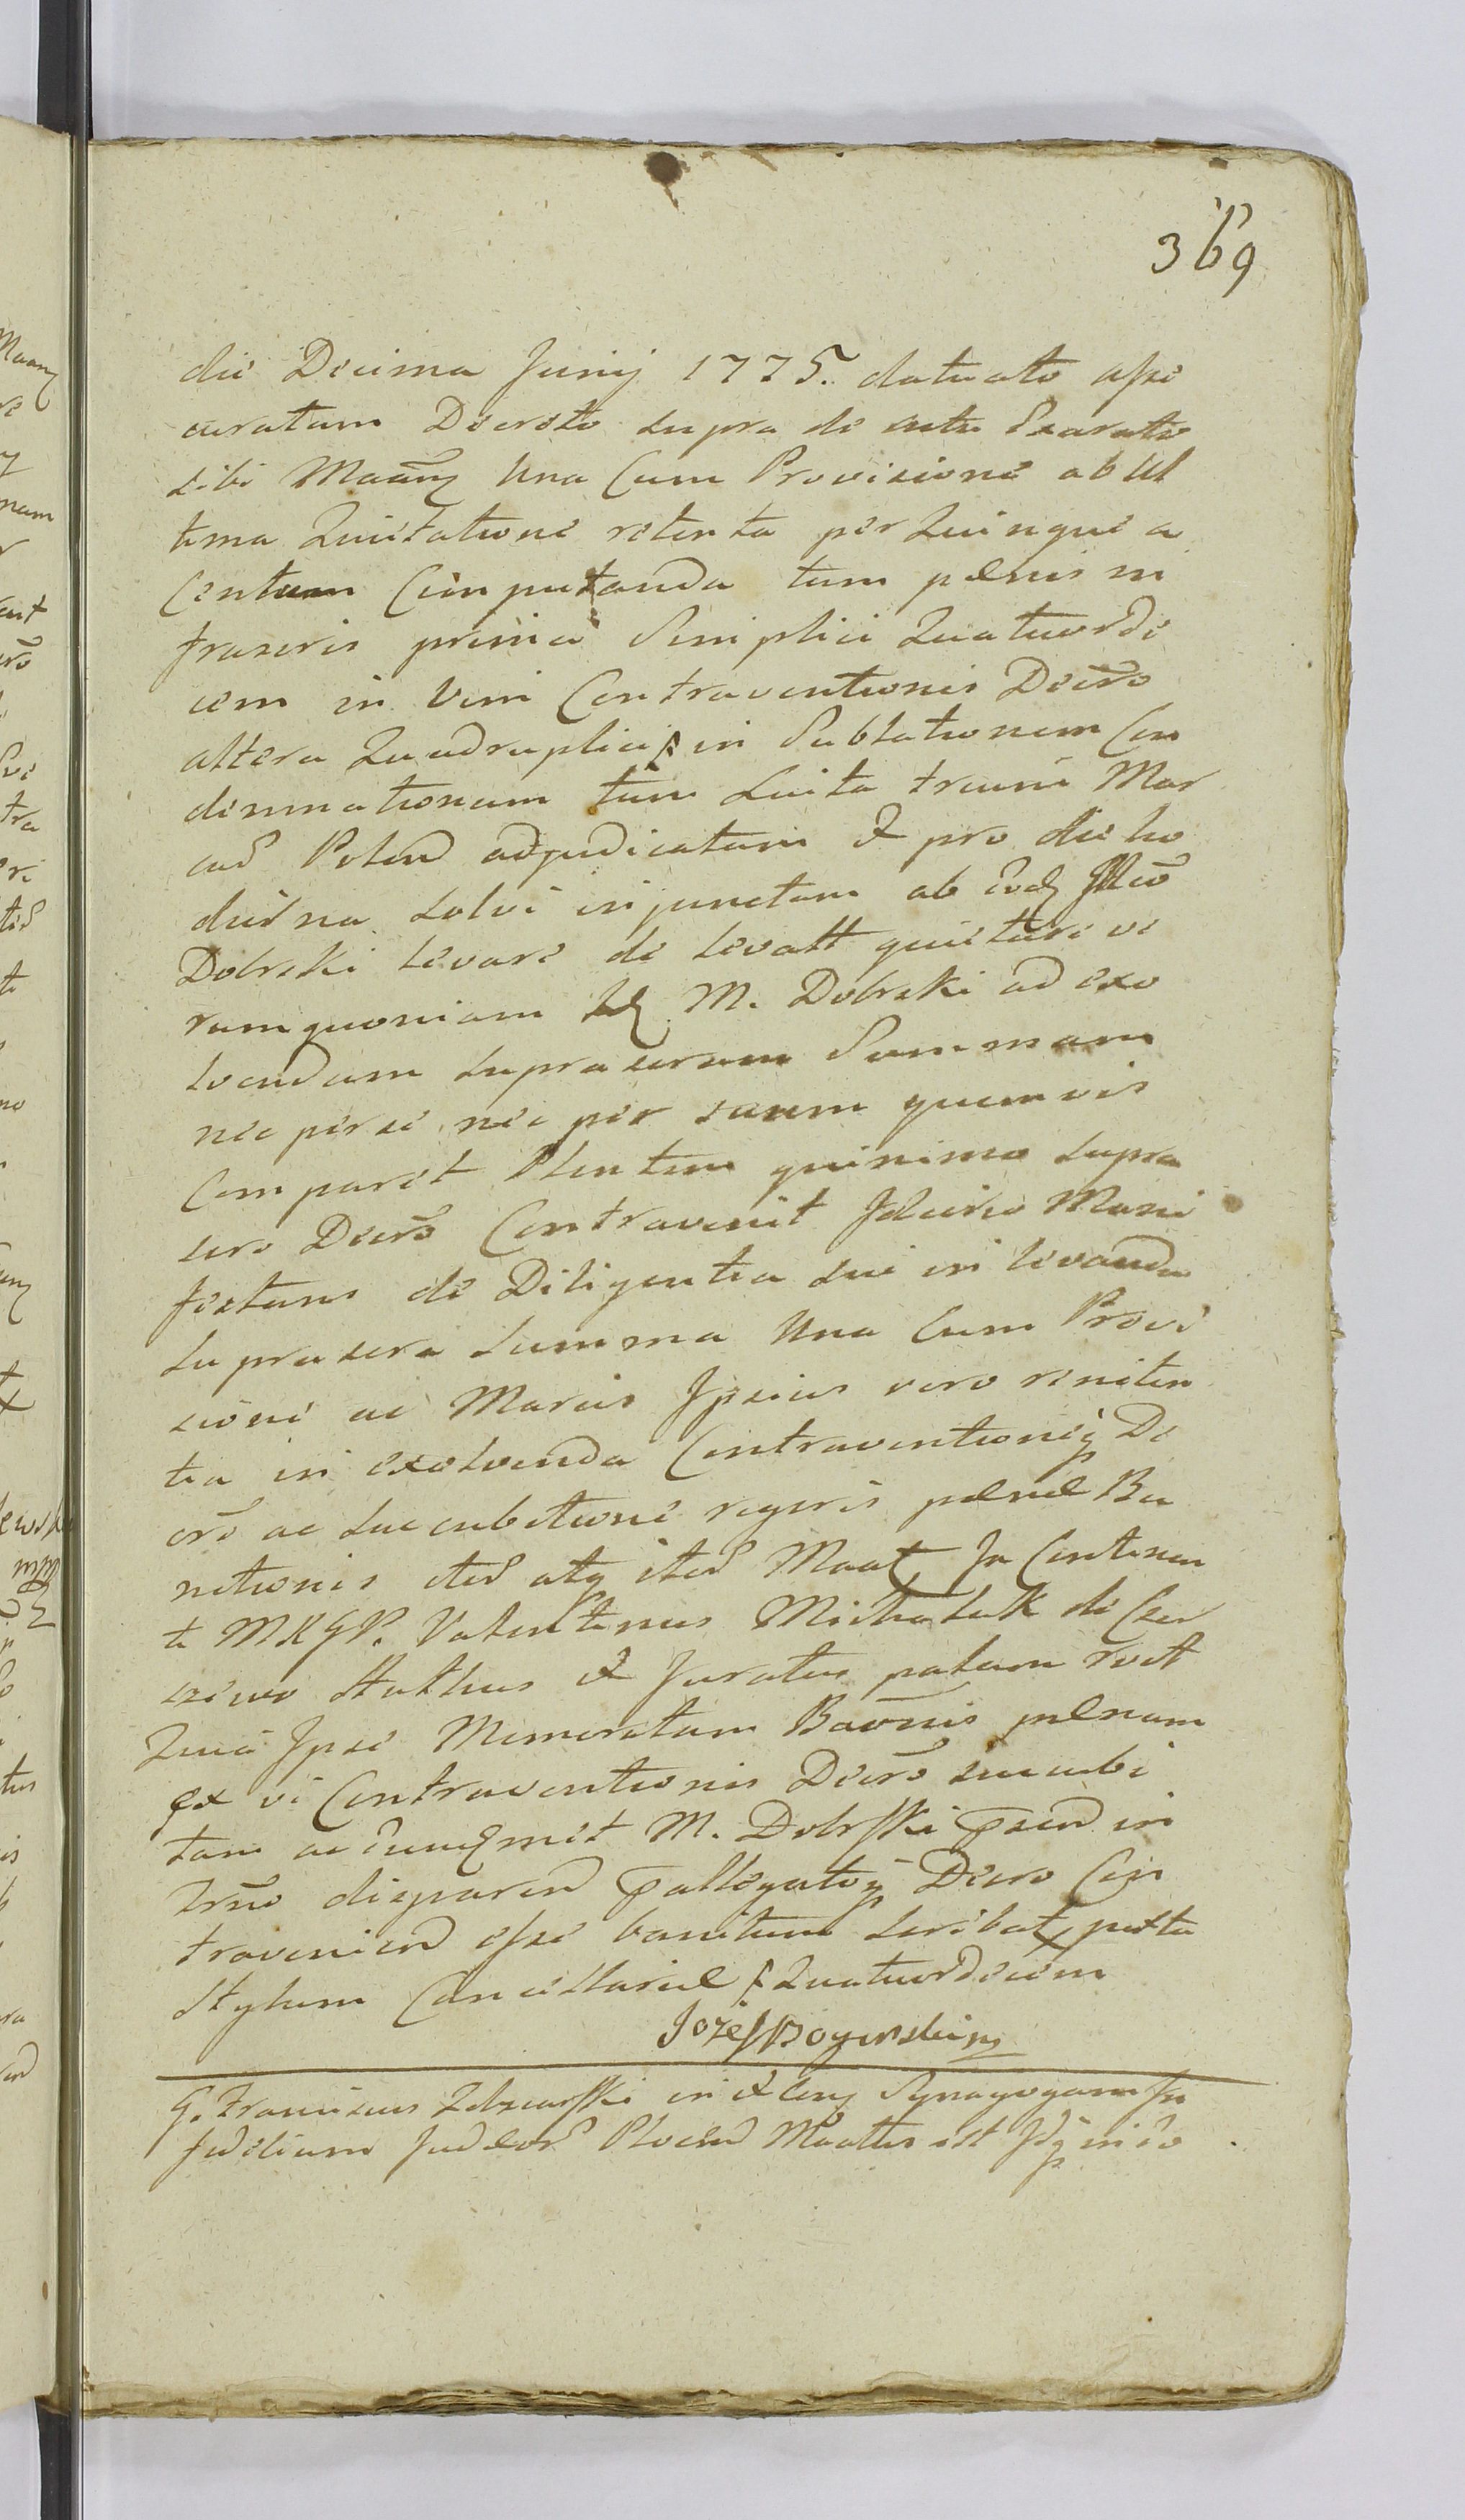 369
die Decima Junij 1775. datuato asse
curatam Decreto supra de actu Exarato
sibi Maanz una Cum Provisione ab Ul
tima Quietatione retenta per Quinque a
Centum Computanda tum pœnis in
fraseris prima Simplici Quatuorde
cem in Vim Contraventionis Decro
altera Quadruplici in Sublationem Con
demnationum tum Luita trium Mar
cas Polend adjudicatam & pro die ho
dierna solvi injunctam ab eodz Mco
Dobrski levare de levatt quietare ve
rum quoniam Idz M. Dobrski ad exo
lvendum supraseram Summam
nec per se nec per suum quemvis
Comparet Plentem quinimo supra
sero Decro Contravenit Idcirco Mani
festans de Diligentia sui in levanda
suprasera summa Una Cum Provi
sione ac Marcis Ipsius vero reniten
tia in exolvenda Contraventioneq De
cro ac succubitione regeris pœnæ Ba
nitionis ited atq ited Maat In Continen
ti MRGP. Valentinus Michaluk de Czer
szewo Authus & Juratus palam rvit
Quia Ipse Memoratum Baonis pœnam
Ex vi Contraventionis Decro succubi
tam ac eundmet M. Dobrski psend in
Trno disparend pallegatoq Decro Con
travenien esse banitum scribat juxta
Stylum Cancellariæ Quatuordecim
Jozef Bogurskimp
G. Franciscus Zdziarski in & Cong Synagogam In
fidelium Judæor Plocen Maattus est Idq inio